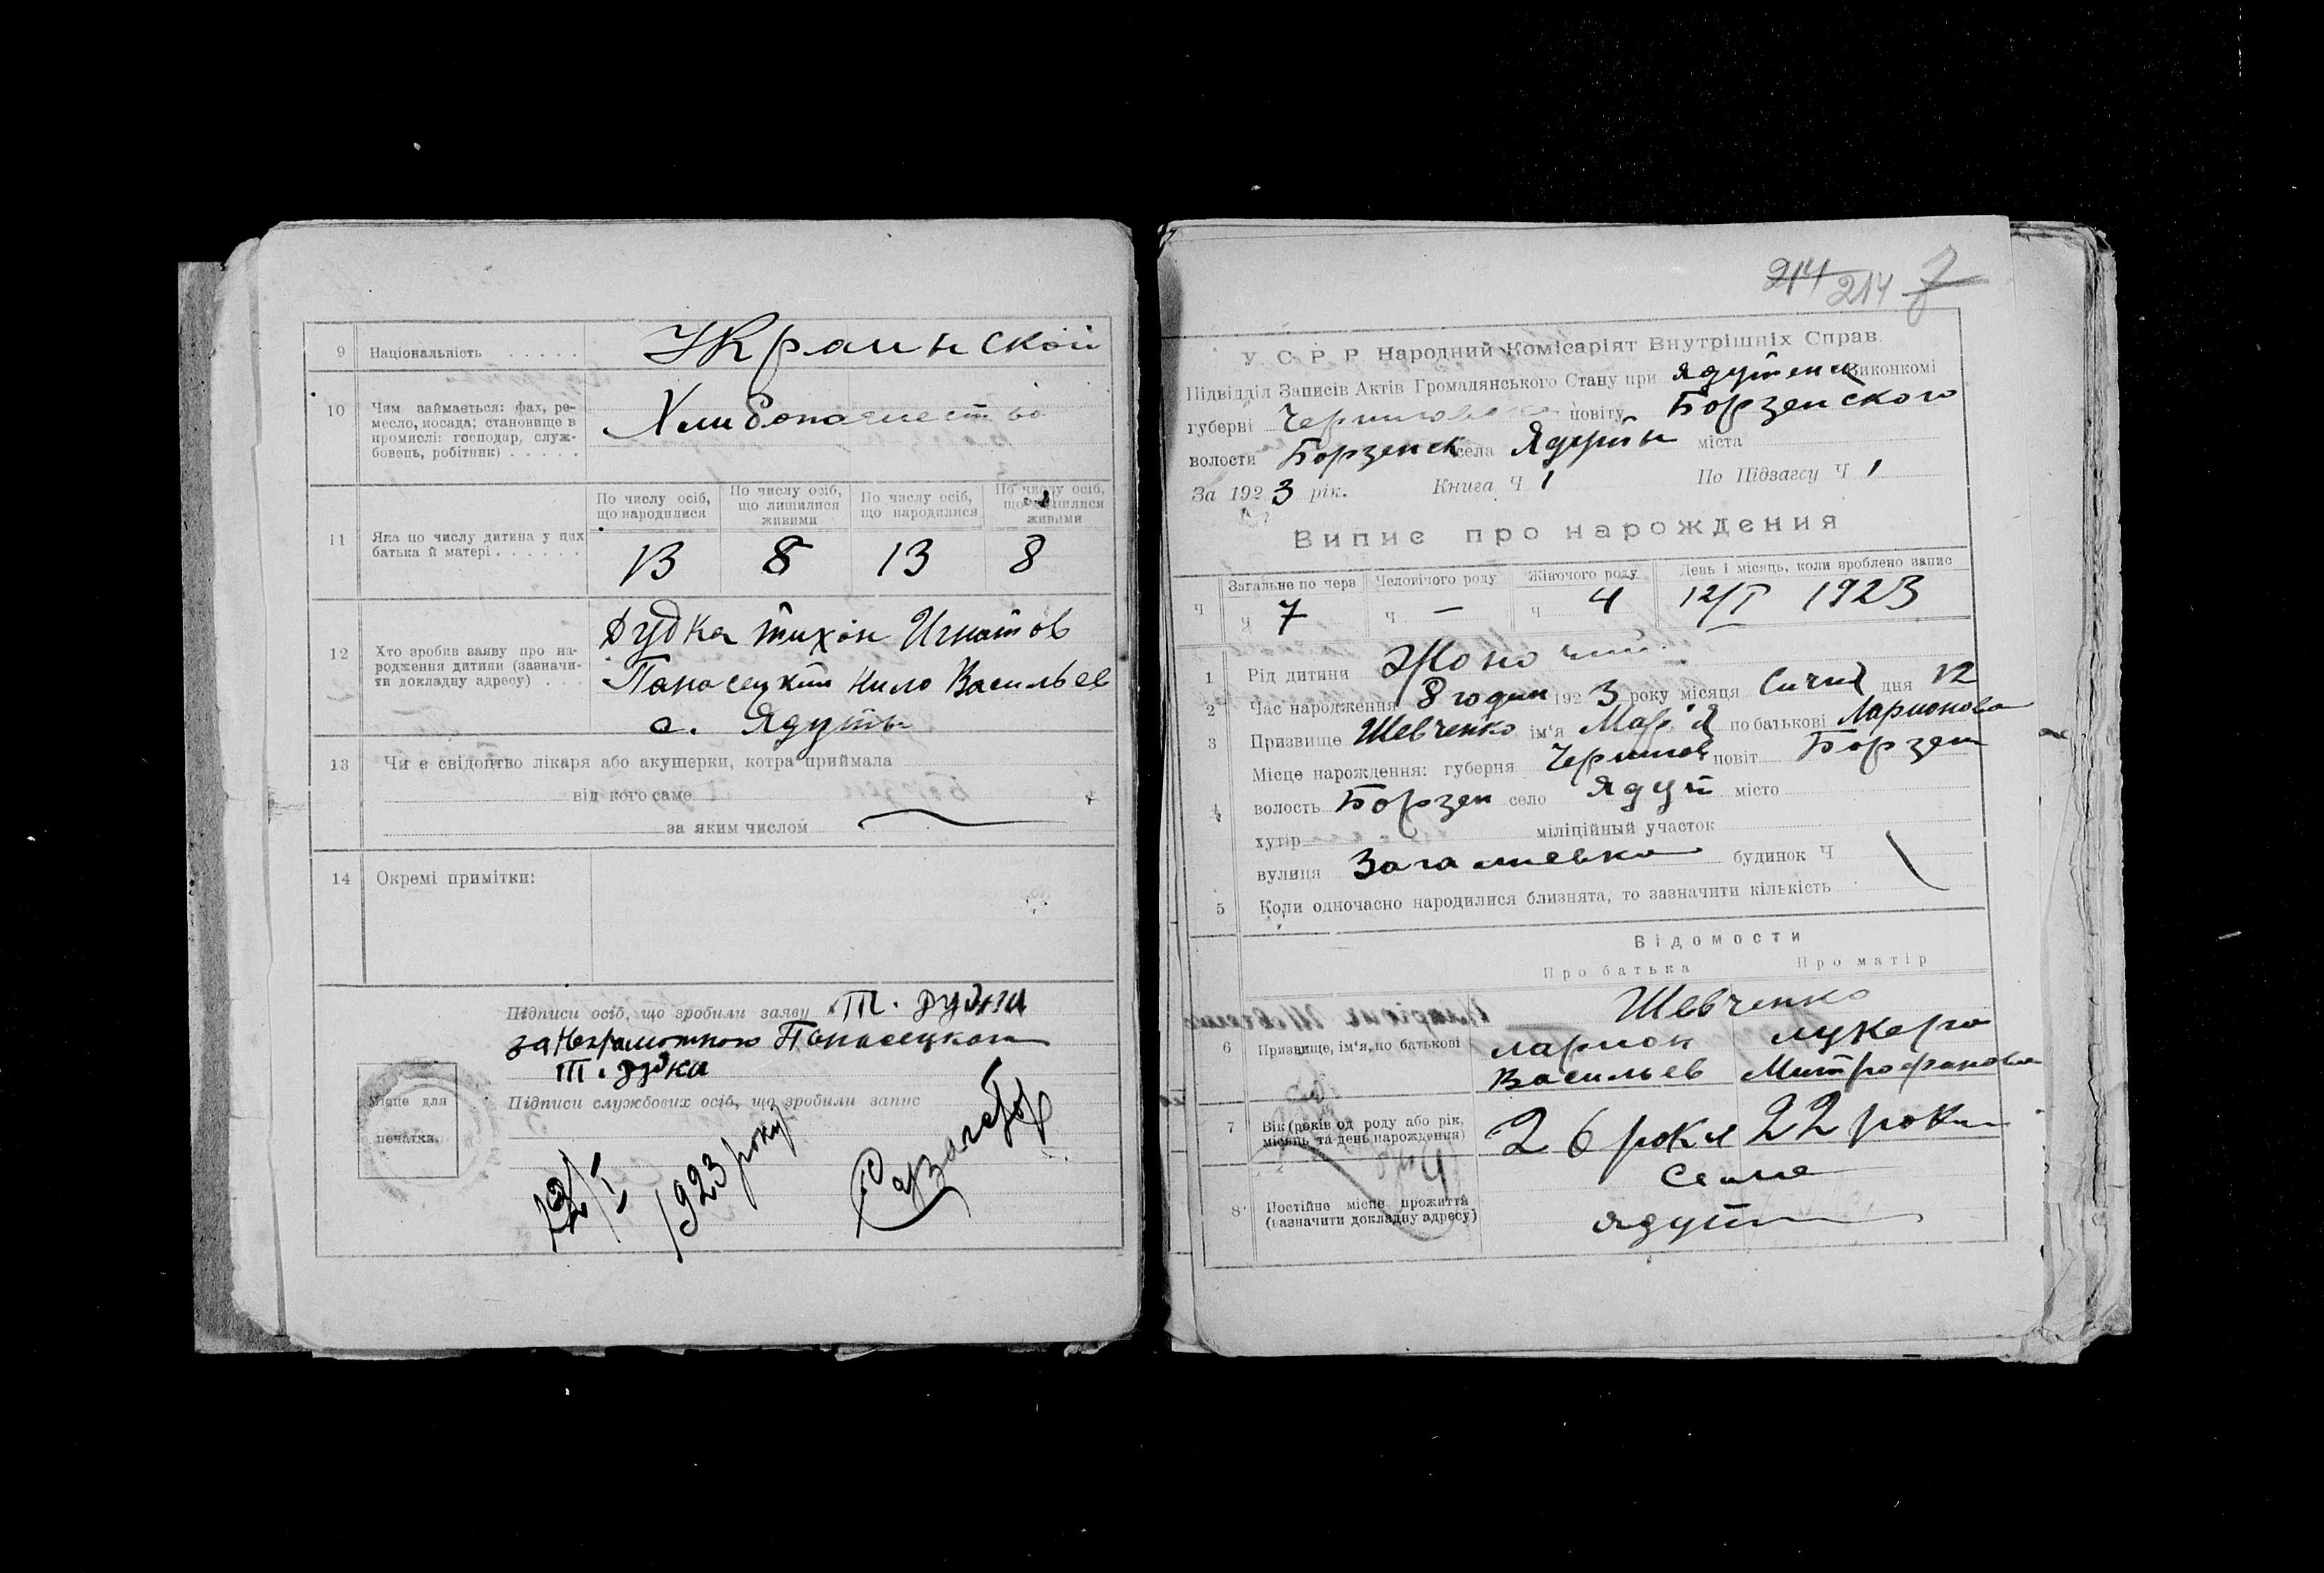 9 Національність . . . . . Украинской
10 Чим займається: фах, ре-
месло, посада; становище в
промислі: господар, служ-
бовець, робітник) . . . . .
11 Яка по числу дитина у цих
батька й матері . . . . . .
По числу осіб, що народилися
По числу осіб, що лишилися живими
По числу осіб, що народилися
По числу осіб, що лишилися живими
13 8 13 8
12 Хто зробив заяву про на-
родження дитини (зазначи-
ти докладну адресу) . . .
Дудка Тихон Игнатов
Панасецкий Нило Васильев
с. Ядуты
13 Чи є свідоцтво лікаря або акушерки, котра приймала
від кого саме
за яким числом
14 Окремі примітки:
Підписи осіб, що зробили заяву Т. Дудка
за неграмотного Панасецкого
Т. Дудка
Місце для печатки.
Підписи службових осіб, що зробили запис
12/I 1923 року
214 214 7
У. С. Р. Р. Народний Комісаріят Внутрішніх Справ.
Підвідділ Записів Актів Громадянського Стану при Ядутенск Виконкомі
губерні повіту Борзенского
волости Борзенск села Ядуты міста
За 1923 рік. Книга Ч 1 По Підзагсу Ч 1
Випис про нарождения
Ч Загальне по черв Ч 7
Человічого роду Ч —
Жіночого роду Ч 4
День і місяць, коли вроблено запис 12/I 1923
1 Рід дитини Жоночий
2 Час народження 8 годин 1923 року місяця Сичня дня 12
3 Призвище Шевченко ім'я Мар'я по батькові Ларионова
4 Місце нарождення: губерня Чернигов повіт Борзен
волость Борзен село Ядут місто
хутір міліційный участок
вулиця будинок Ч
5 Коли одночасно народилися близнята, то зазначити кількість
Відомости
Про батька Про матір
6 Призвище, ім'я, по батькові
Шевченко
Ларион Лукера
Васильев Митрофанова
7 Вік (років од роду або рік, місяць та день нарождення) 26 рокя 22 роки
8 Постійне місце прожиття (зазначити докладну адресу)
Село
Ядути